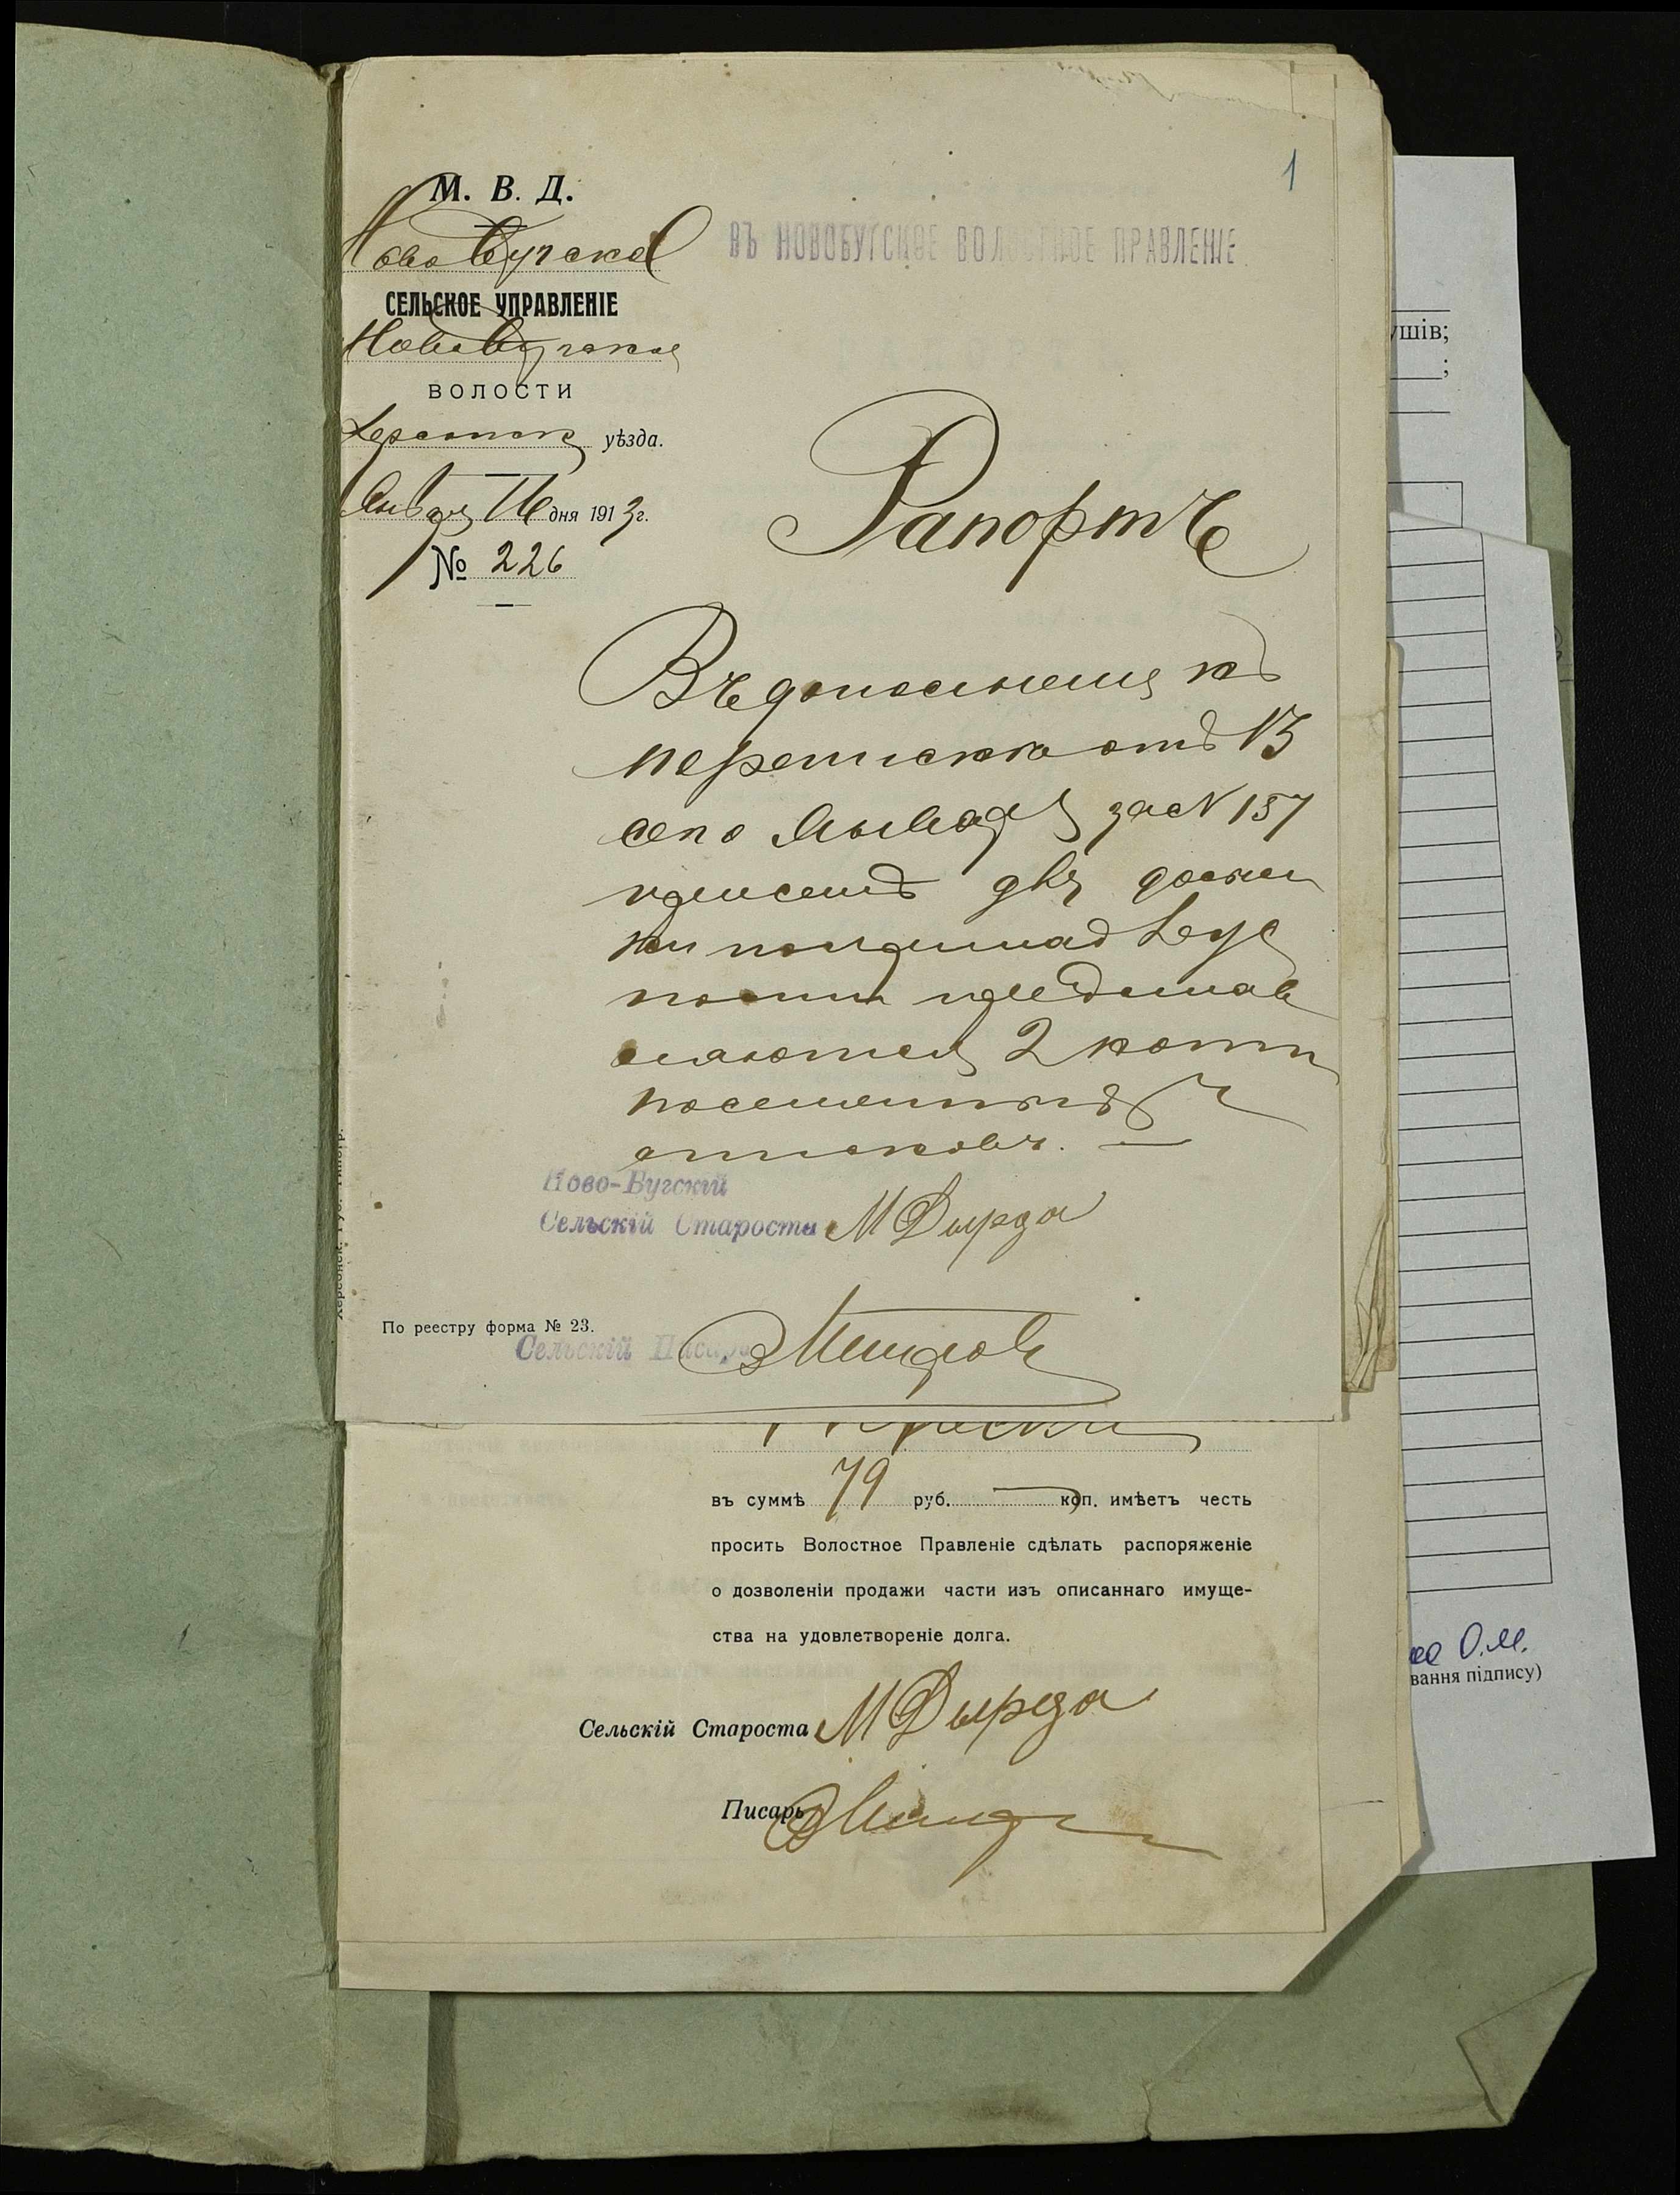 1
М. В. Д.
Ново Бугское
СЕЛЬСКОЕ УПРАВЛЕНІЕ
Ново Бугской
ВОЛОСТИ
Херсонск уѣзда.
Января 16 дня 1913 г.
№ 226
ВЪ НОВОБУГСКОЕ ВОЛОСТНОЕ ПРАВЛЕНІЕ.
Рапортъ
Въ дополненіе къ
переписки отъ 13
сего Января за № 157
при семъ
представ
ляются 2 копіи
описковъ. —
Ново-Бугскій
Сельскій Староста М Дырда
По реестру форма № 23.
Сельскій Писарь
въ суммѣ 79 руб. — коп. имѣетъ честь
просить Волостное Правленіе сдѣлать распоряженіе
о дозволеніи продажи части изъ описаннаго имуще-
ства на удовлетвореніе долга.
Сельскій Староста М Дырда
Писарь
ушів;
;
О.М.
вання підпису)